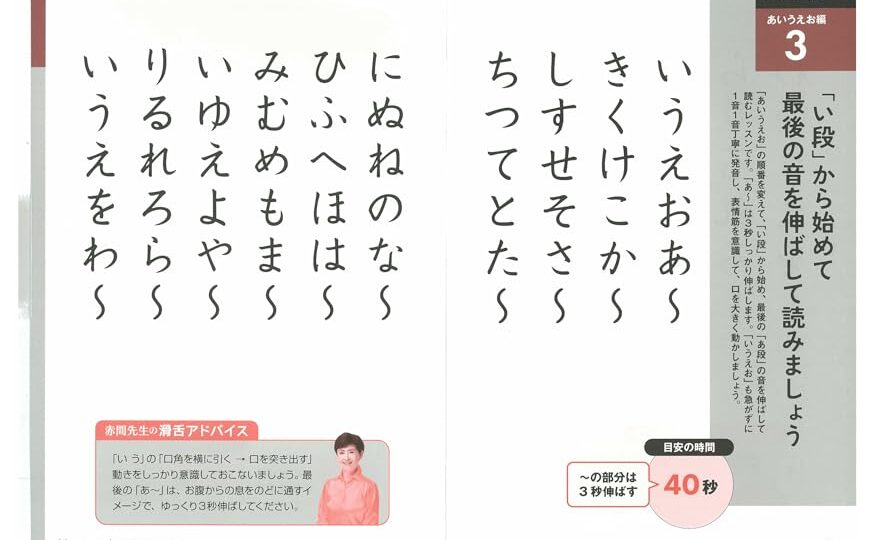 あいうえお編
3
「い段」から始めて
最後の音を伸ばして読みましょう
「あいうえお」の順番を変えて、「い段」から始め、最後の「あ段」の音を伸ばして
読むレッスンです。「あ〜」は3秒しっかり伸ばします。「いうえお」も急がずに
1音1音丁寧に発音し、表情筋を意識して、口を大きく動かしましょう。
いうえおあ〜
きくけこか〜
しすせそさ〜
ちつてとた〜
目安の時間
〜の部分は
3秒伸ばす
40秒
にぬねのな〜
ひふへほは〜
みむめもま〜
いゆえよや〜
りるれろら〜
いうえをわ〜
赤間先生の滑舌アドバイス
「い う」の「口角を横に引く → 口を突き出す」
動きをしっかり意識しておこないましょう。最
後の「あ〜」は、お腹からの息をのどに通すイ
メージで、ゆっくり3秒伸ばしてください。